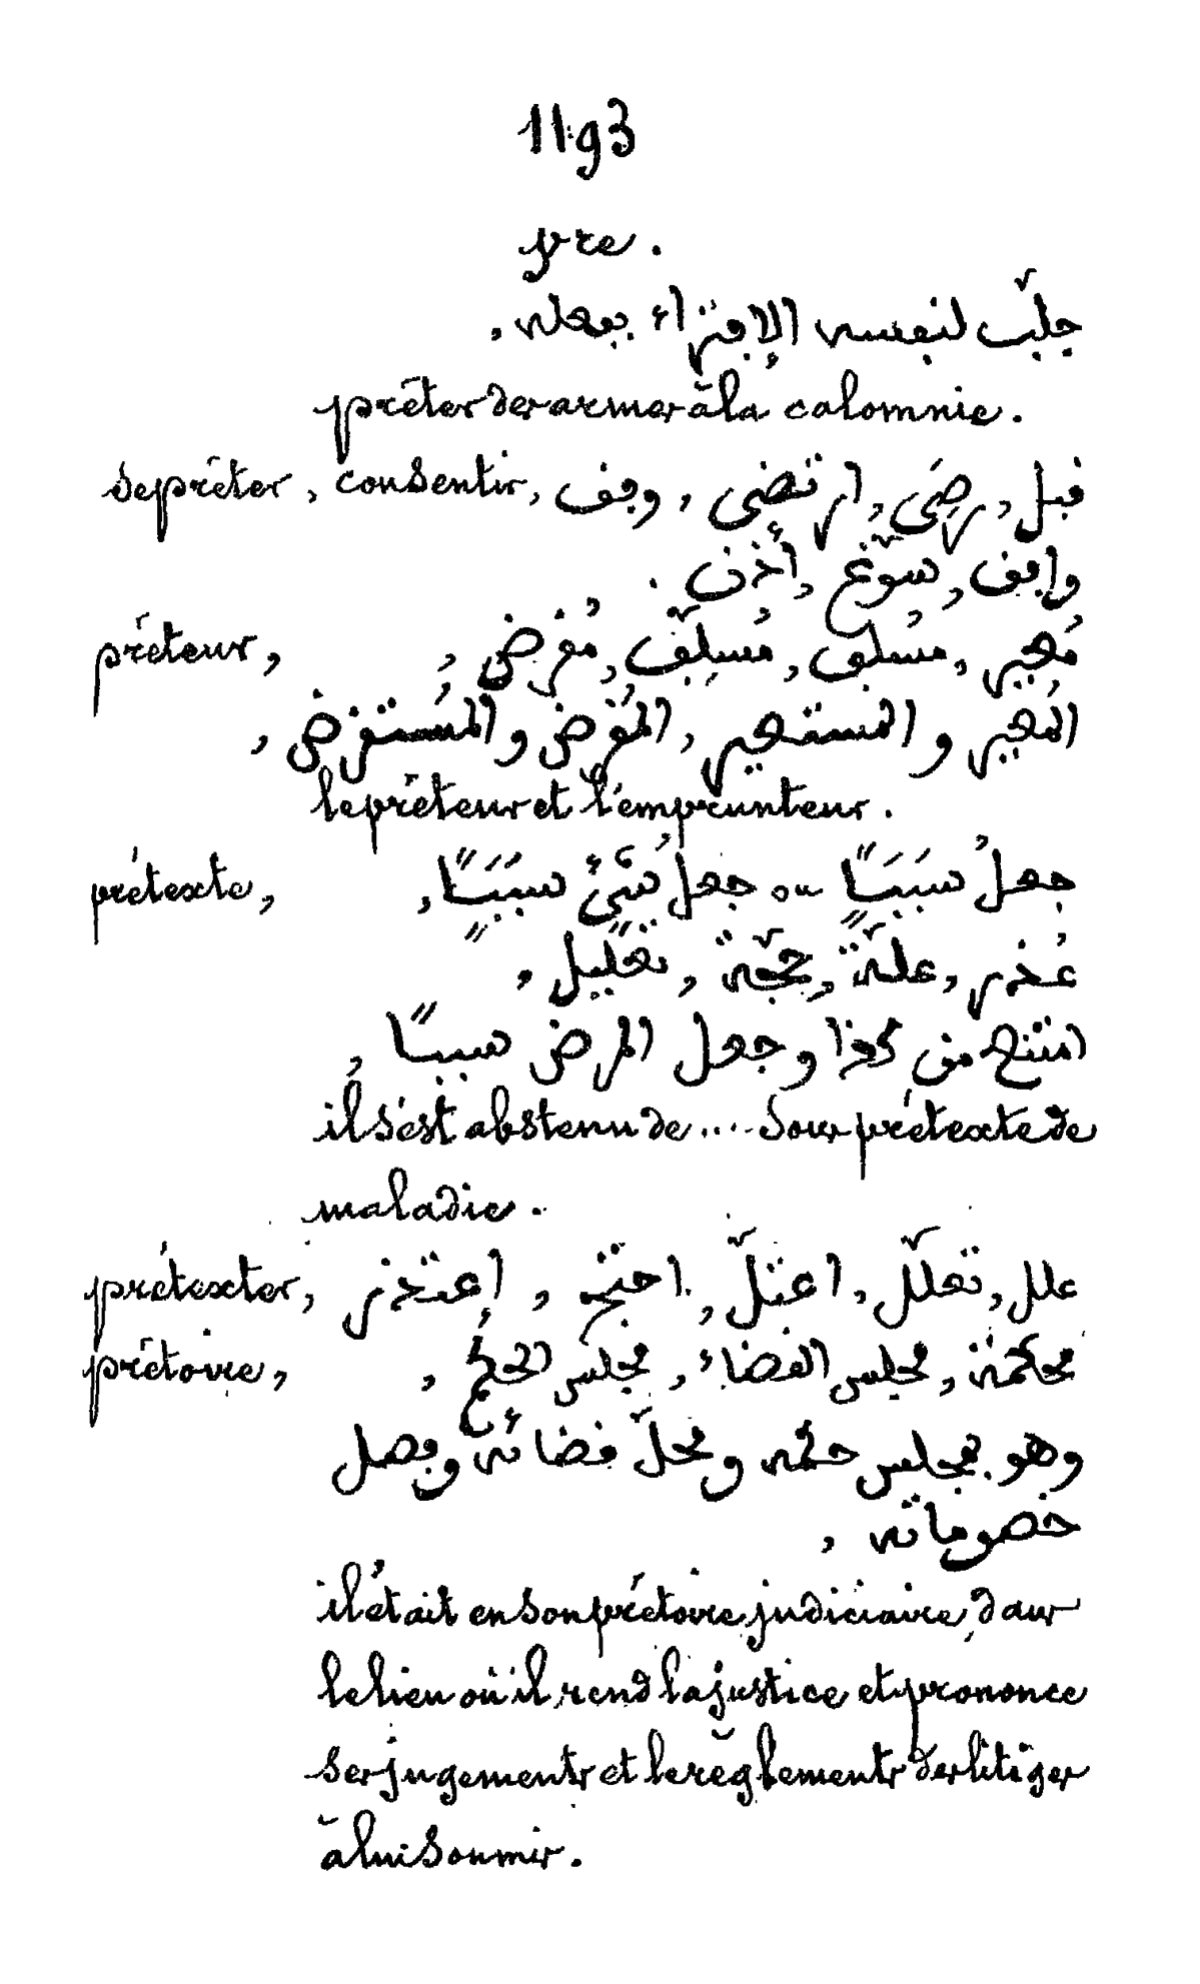 1193
pre.
جلّب لنفسه الإفتراء بفعله,
prêter des armes à la calomnie.
se prêter, consentir, قبل, رضَى, ارتضى, وفق
وافق, سوّغ, أذن.
prêteur, مُعير, مُسلف, مُسلِّف, مُقرض,
المُعير والمستعير, المُقرض والمُستقرض,
le prêteur et l'emprunteur.
prétexte, جعلُ سَبَبًا ou جعلُ شَئ سَبَبًا,
عُذر, علّة, حجّة, تعليل,
امتنع من كذا وجعل المرض سببًا,
il s'est abstenu de .... sous prétexte de
maladie.
prétexter, علل, تعلّل, اعتلّ, احتج, إعتذر
prétoire, محكمة, مجلس القضاء, مجلس الحُكم,
وهو بمجلس حكمه ومحلّ قضائه وفصل
خصوماته,
il était en son prétoire judiciaire, dans
le lieu où il rend la justice et prononce
ses jugements et les règlements des litiges
à lui soumis.